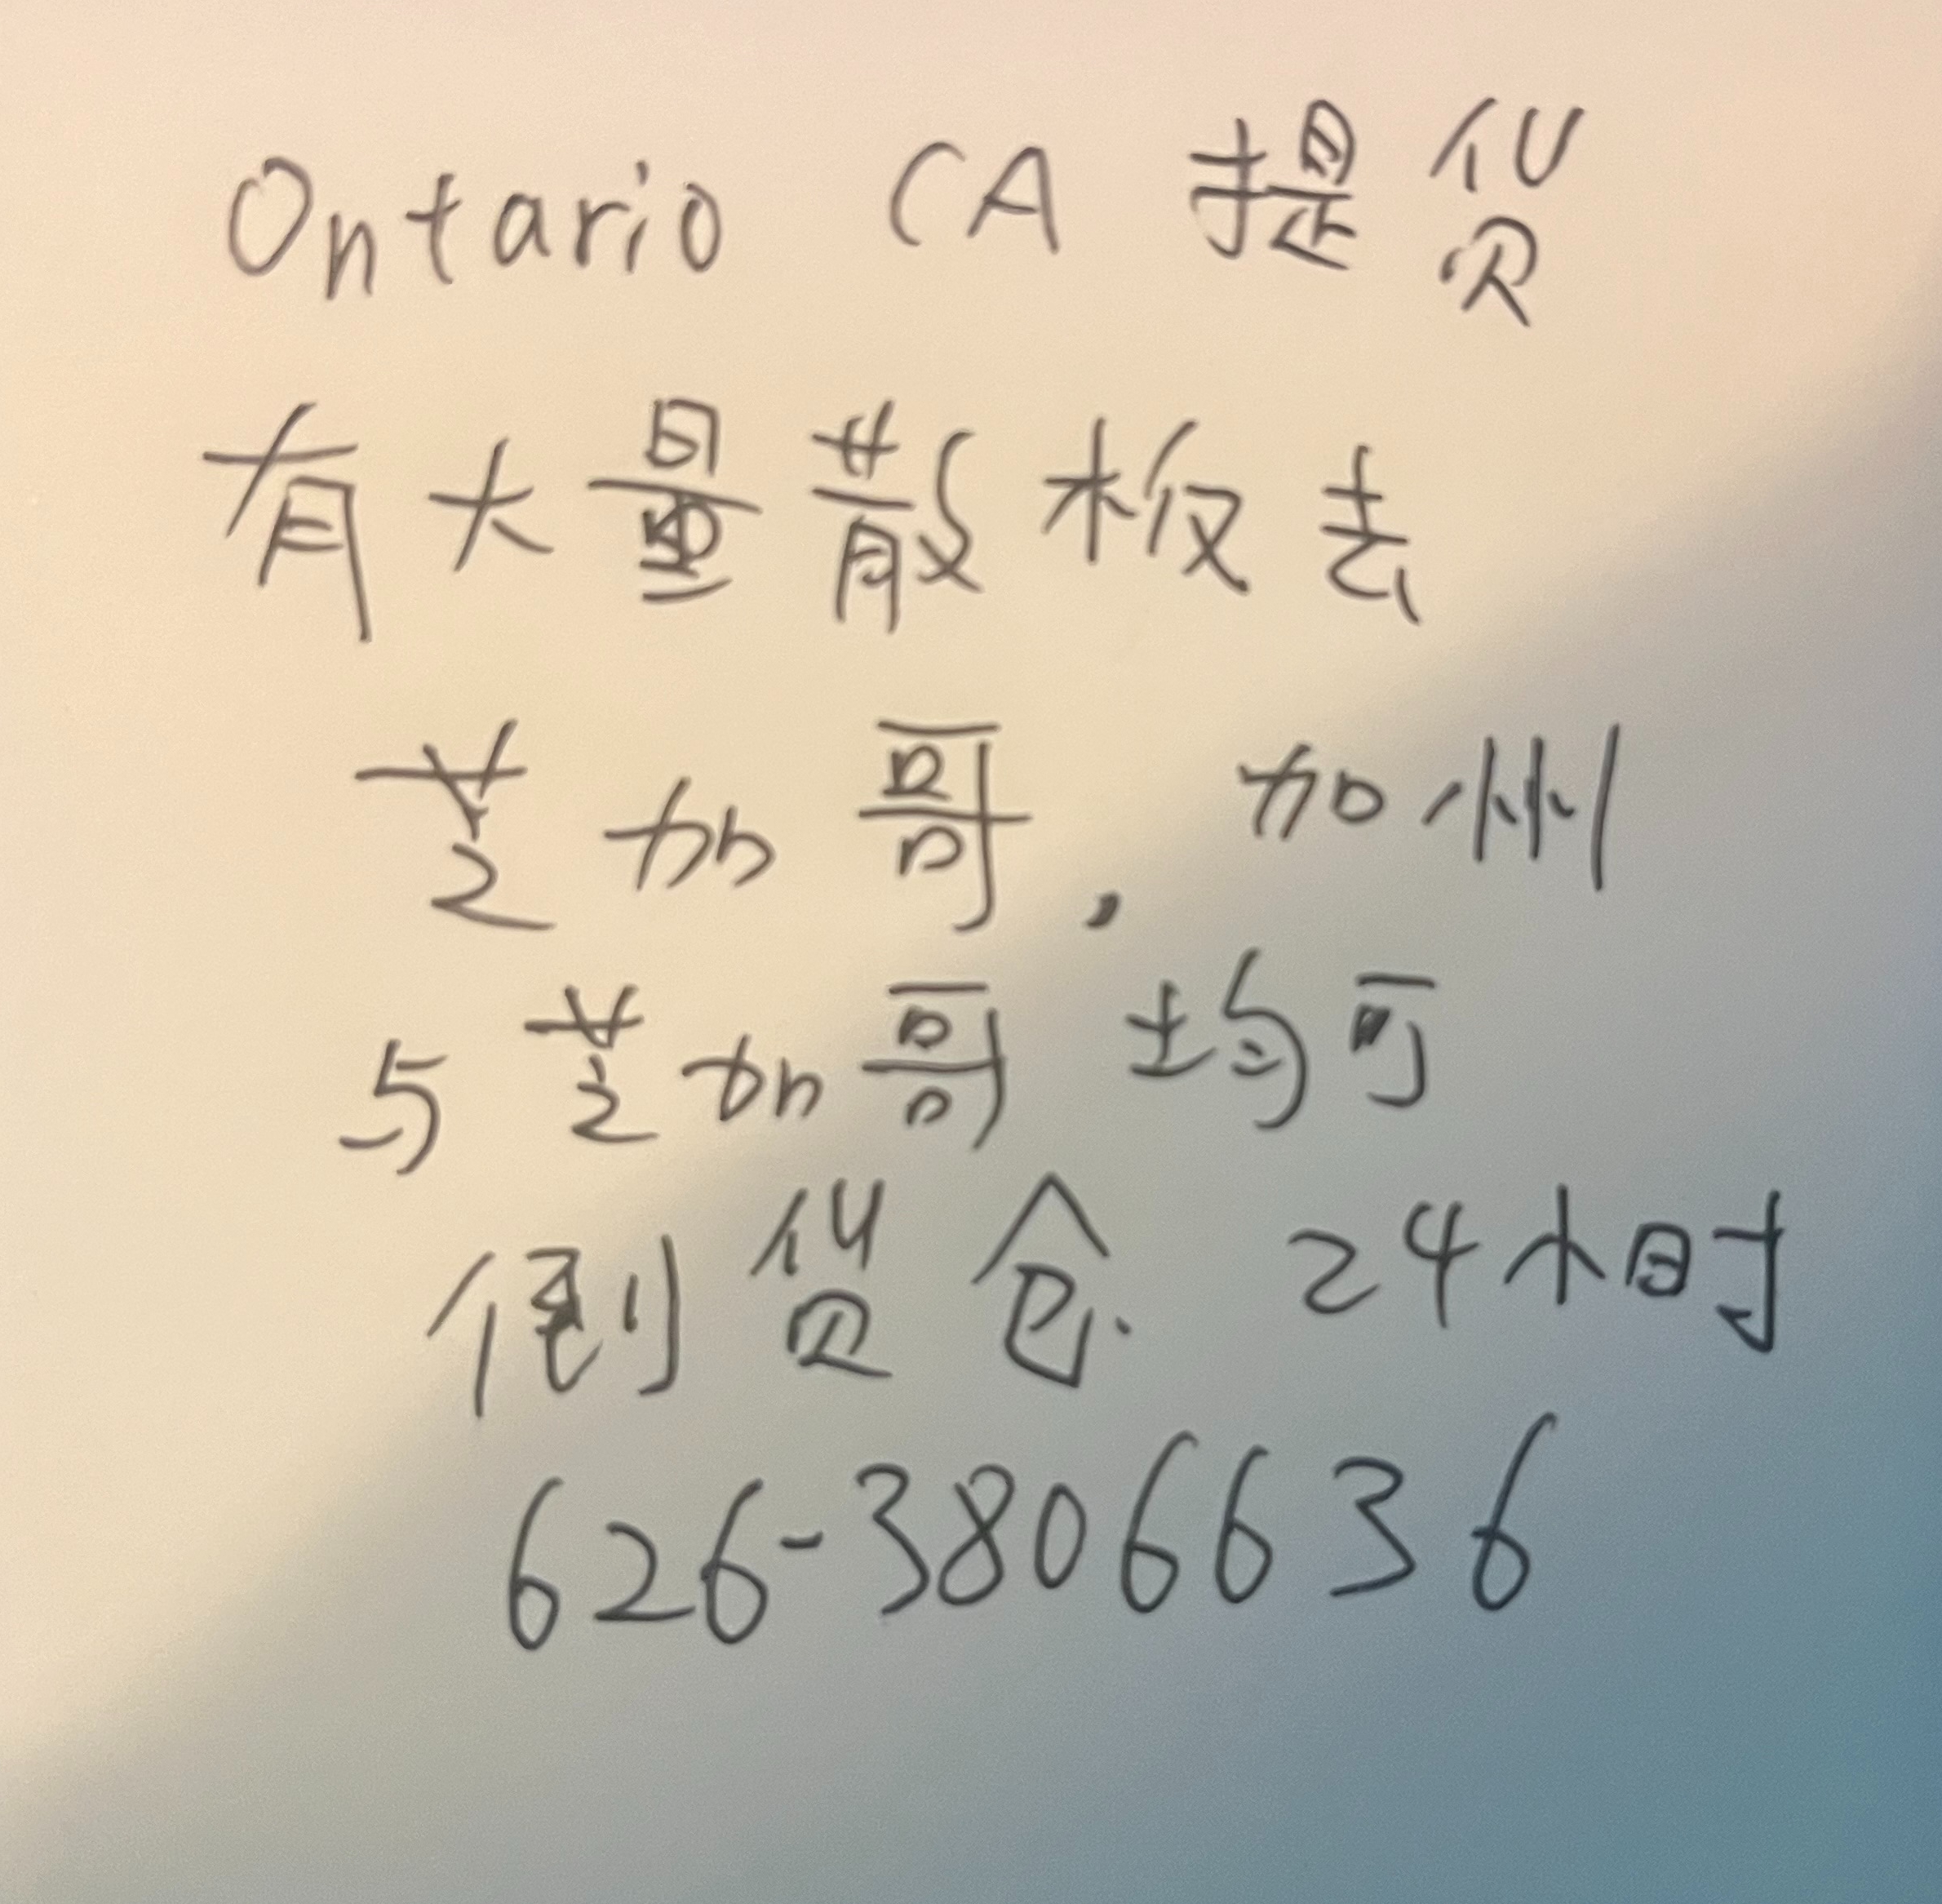 Ontario CA 提货
有大量散板去
芝加哥. 加州
与芝加哥均可
倒货仓. 24小时
626-3806636